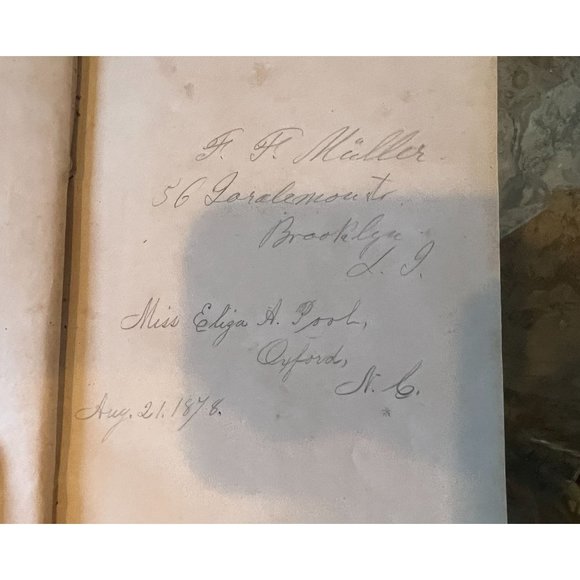 F. F. Müller
56 Joralemon St.
Brooklyn
L. I.
Miss Eliza A. Pool,
Oxford,
N. C.
Aug. 21. 1878.